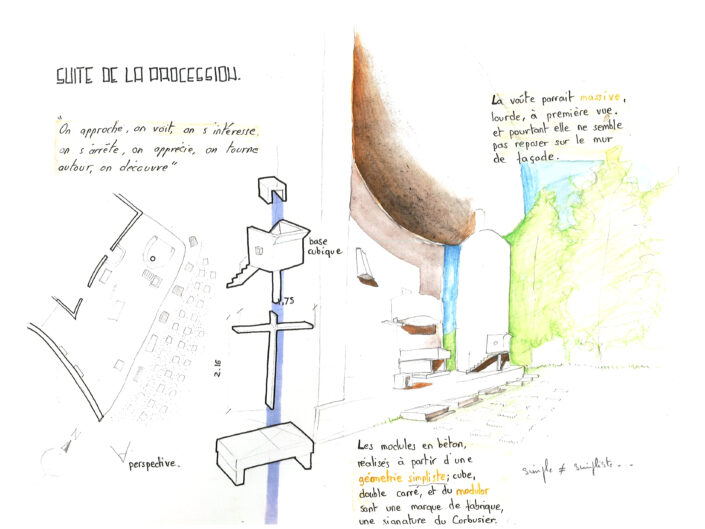 SUITE DE LA PROCESSION.
"On approche, on voit, on s'intéresse,
on s'arrête, on apprécie, on tourne
autour, on découvre"
La voûte parrait massive,
lourde, à première vue.
et pourtant elle ne semble
pas reposer sur le mur
de façade.
base
cubique
,75
2.16
N
perspective.
Les modules en béton,
réalisés à partir d'une
géométrie simpliste; cube,
double carré, et du modulor
sont une marque de fabrique,
une signature du Corbusier.
simple ≠ simpliste...